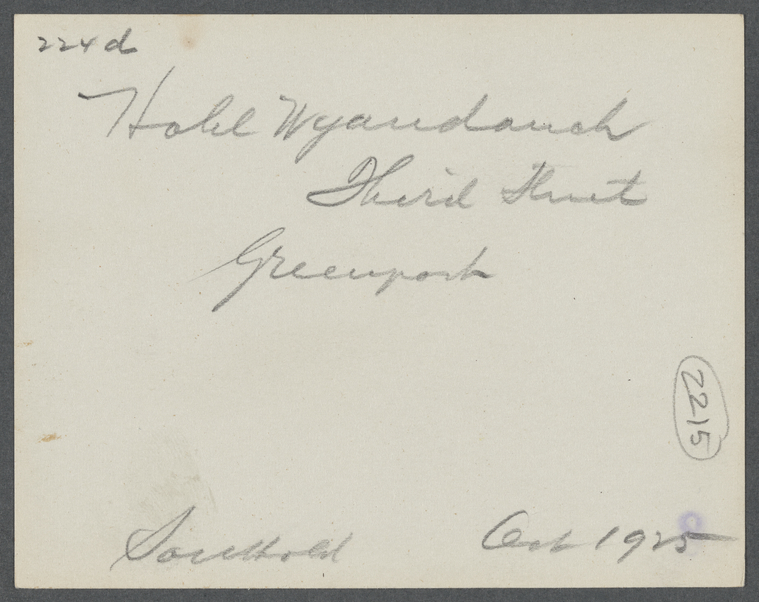 224d
Hotel Wyandanch
Third Street
Greenport
2215
Southold Oct 1925